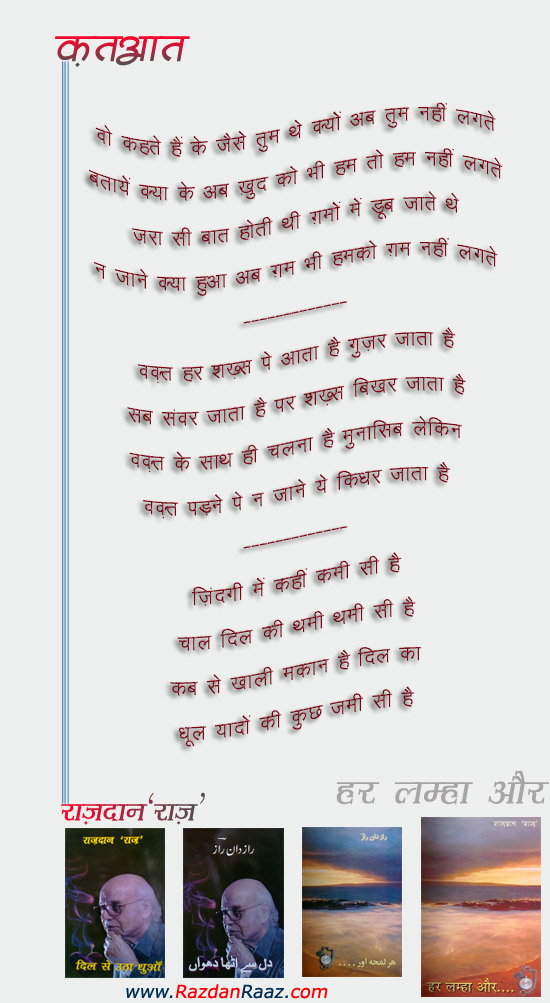 क़तआत
वो कहते हैं के जैसे तुम थे क्यों अब तुम नहीं लगते
बतायें क्या के अब ख़ुद को भी हम तो हम नहीं लगते
ज़रा सी बात होती थी ग़मों में डूब जाते थे
न जाने क्या हुआ अब ग़म भी हमको ग़म नहीं लगते
वक़्त हर शख़्स पे आता है गुज़र जाता है
सब संवर जाता है पर शख़्स बिखर जाता है
वक़्त के साथ ही चलना है मुनासिब लेकिन
वक़्त पड़ने पे न जाने ये किधर जाता है
ज़िंदगी में कहीं कमी सी है
चाल दिल की थमी थमी सी है
कब से खाली मकान है दिल का
धूल यादों की कुछ जमी सी है
हर लम्हा और
राज़दान ‘राज़’
राज़दान ‘राज़’
दिल से उठा धुआँ
راز دان راز
دل سے اٹھا دھواں
راز دان راز
ہر لمحہ اور....
राज़दान ‘राज़’
हर लम्हा और....
www.RazdanRaaz.com